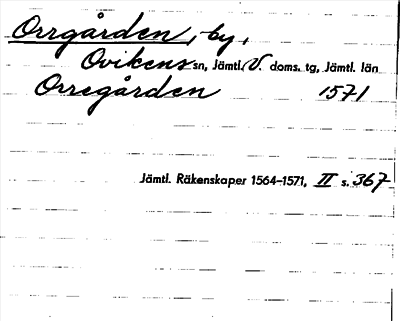 Orrgården, by,
Ovikens sn, Jämtl. V. doms. tg, Jämtl. län
Orregården 1571
Jämtl. Räkenskaper 1564-1571, II s. 367